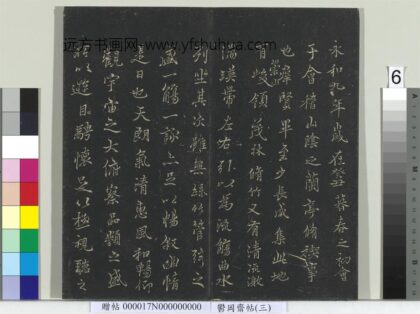 远方书画网 www.yfshuhua.com
永和九年歲在癸丑暮春之初會
于會稽山陰之蘭亭脩禊事
也群賢畢至少長咸集此地
有崇山峻領茂林脩竹又有清流激
湍暎帶左右引以為流觴曲水
列坐其次雖無絲竹管弦之
盛一觴一詠亦足以暢敘幽情
是日也天朗氣清惠風和暢仰
觀宇宙之大俯察品類之盛
所以遊目騁懷足以極視聽之
6
贈帖 000017N000000000 鬱岡齋帖(三)